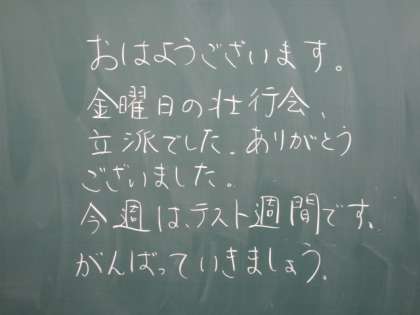 おはようございます。
金曜日の壮行会、
立派でした。ありがとう
ございました。
今週は、テスト週間です。
がんばっていきましょう。